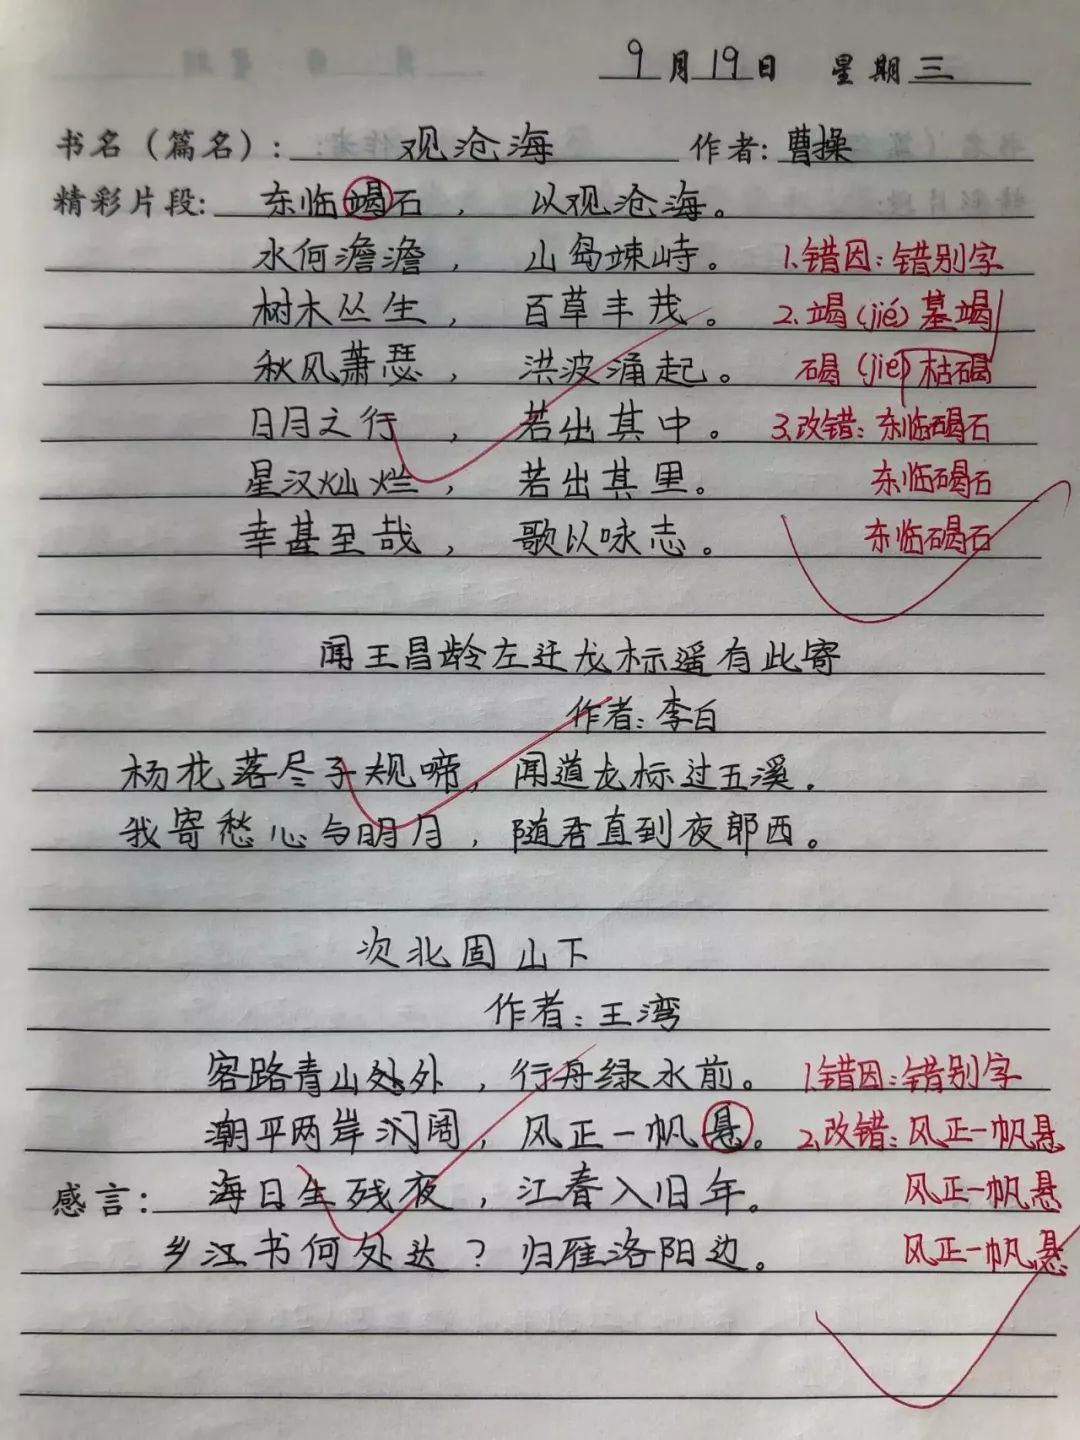 9月19日 星期三
书名（篇名）：观沧海 作者：曹操
精彩片段：东临竭石，以观沧海。
水何澹澹，山岛竦峙。 1.错因：错别字
树木丛生，百草丰茂。 2.竭（jié）墓竭
秋风萧瑟，洪波涌起。 碣（jié）枯碣
日月之行，若出其中。 3.改错：东临碣石
星汉灿烂，若出其里。 东临碣石
幸甚至哉，歌以咏志。 东临碣石
闻王昌龄左迁龙标遥有此寄
作者：李白
杨花落尽子规啼，闻道龙标过五溪.
我寄愁心与明月，随君直到夜郎西。
次北固山下
作者：王湾
客路青山外，行舟绿水前。 1.错因：错别字
潮平两岸阔，风正一帆悬。 2.改错：风正一帆悬
感言：海日生残夜，江春入旧年。 风正一帆悬
乡江书何处达？归雁洛阳边。 风正一帆悬